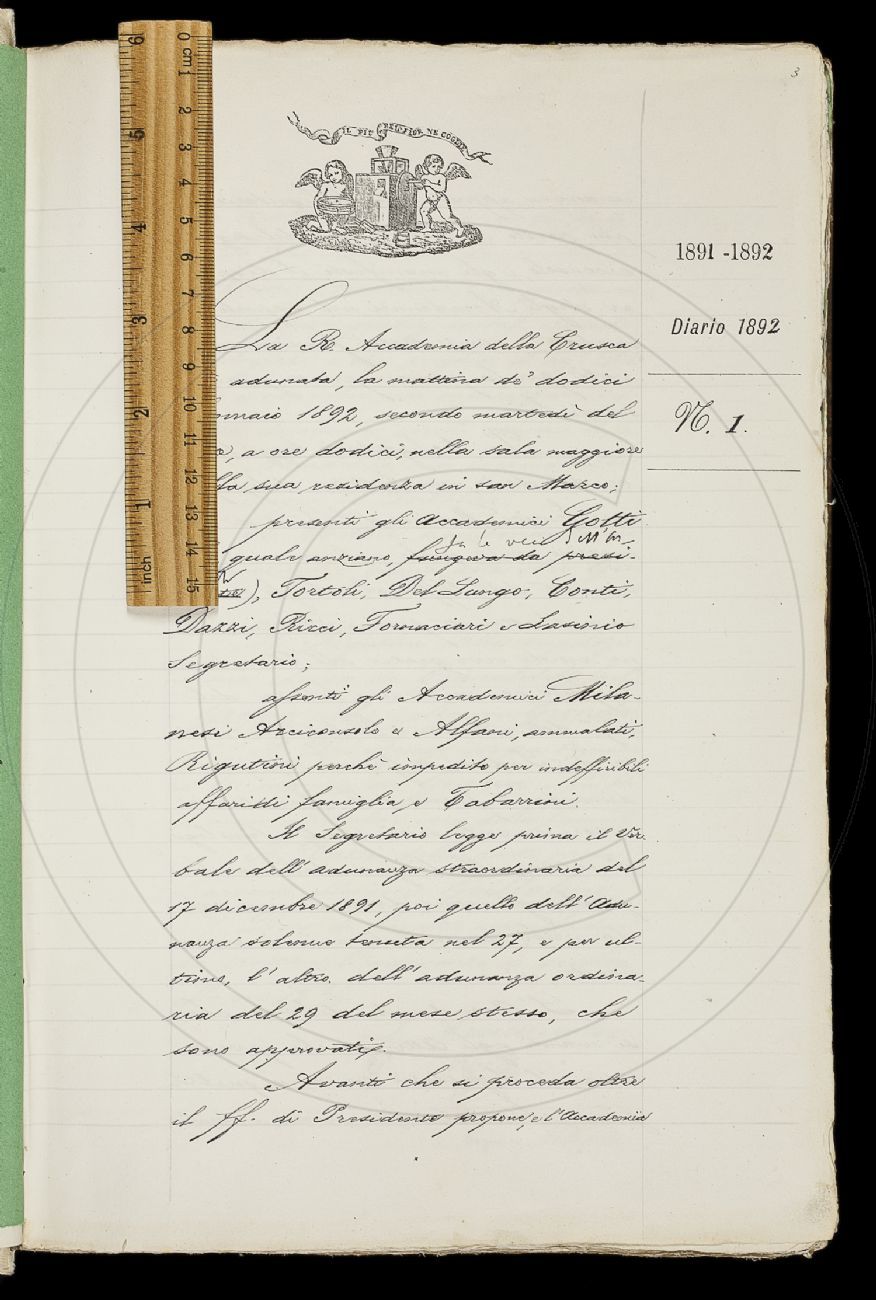 3
IL PIÙ BEL FIOR NE COGLIE
1891-1892
Diario 1892
N. 1.
La R. Accademia della Crusca
adunata, la mattina de' dodici
nnaio 1892, secondo martedì del
a ore dodici, nella sala maggiore
lla sua residenza in san Marco;
presenti gli Accademici Gotti
fa le veci
quale anziano, fungeva da presi-
Tortoli, Del Lungo, Conti,
Dazzi, Rizzi, Fornaciari e Lasinio
Segretario;
assenti gli Accademici Mila-
nesi Arciconsolo e Alfani, ammalati,
Rigutini perchè impedito per indefficibili
affari di famiglia, e Tabarrini.
Il Segretario legge prima il Ver-
bale dell'adunanza straordinaria del
17 dicembre 1891, poi quello dell'Adu-
nanza solenne tenuta nel 27, e per ul-
timo, l'altro dell'adunanza ordina-
ria del 29 del mese stesso, che
sono approvati.
Avanti che si proceda oltre
il ff. di Presidente propone, e l'Accademia
0 cm 1 2 3 4 5 6 7 8 9 10 11 12 13 14 15
inch 1 2 3 4 5 6